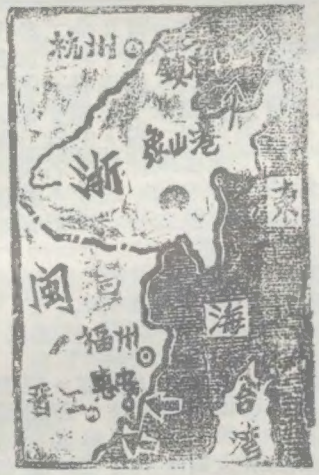 杭州
鎮
象山港
浙
東
海
闽
福州
惠安
晋
台湾